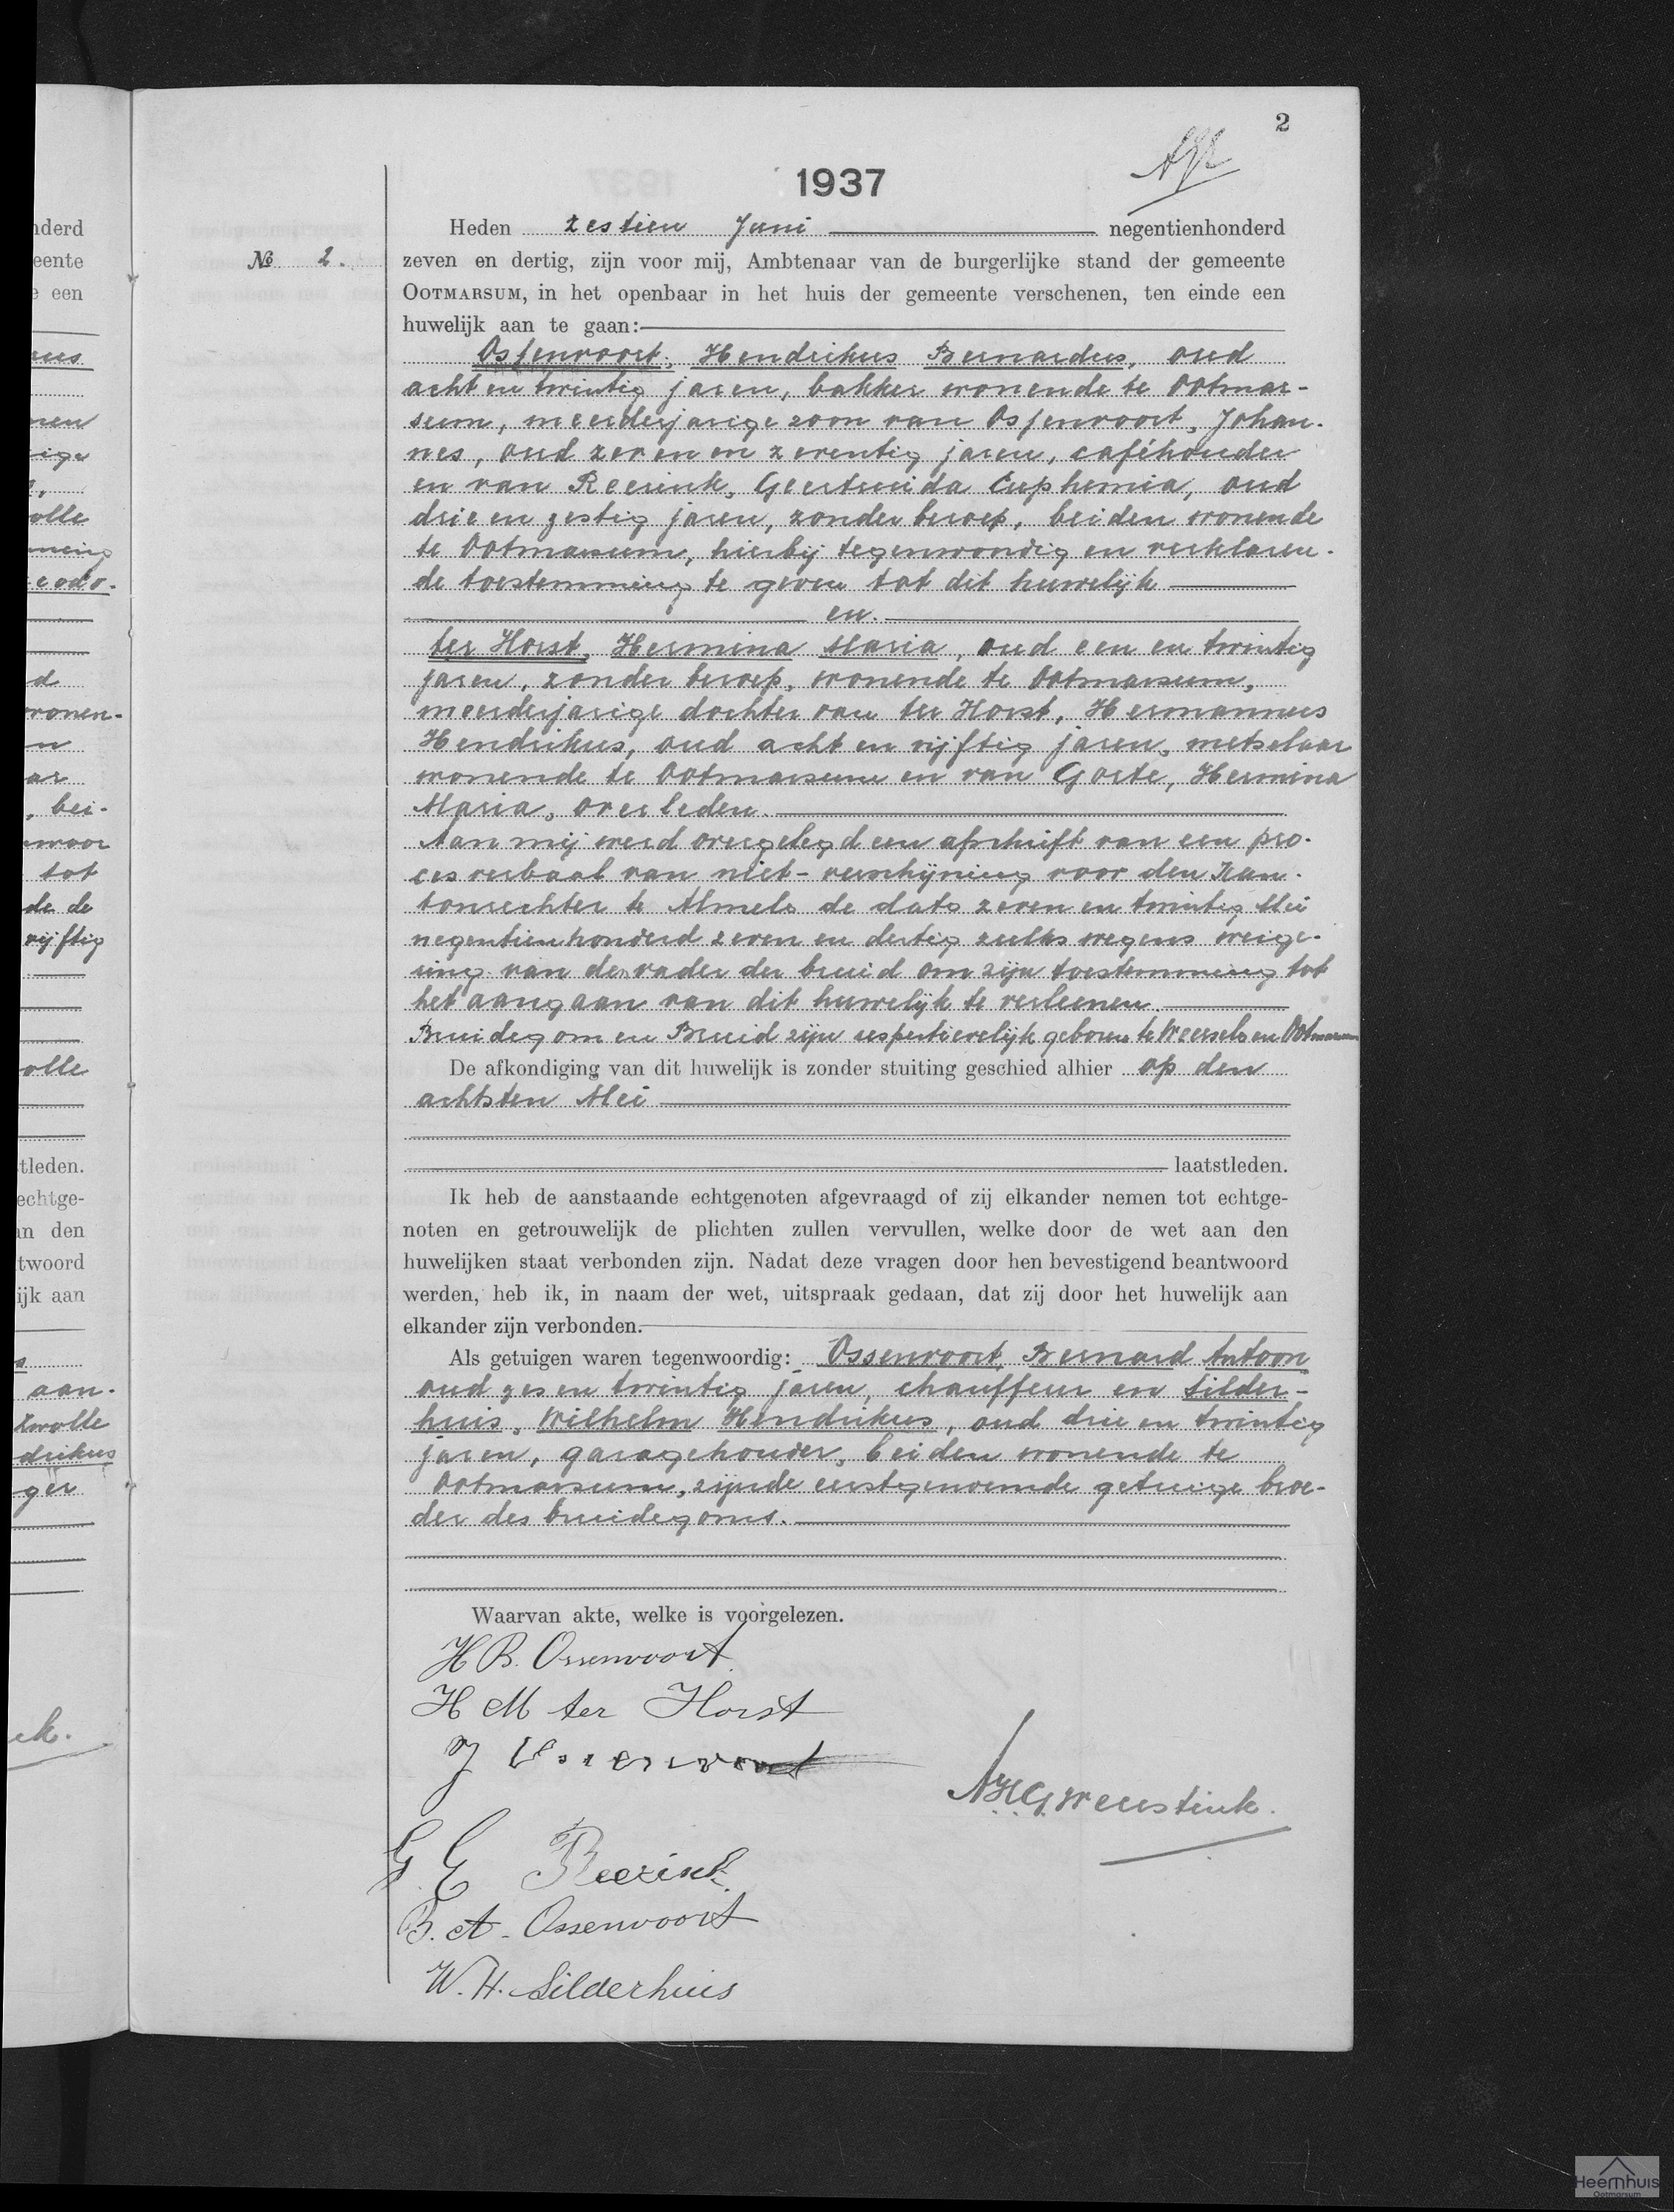 2
1937
Heden zestien Juni negentienhonderd
No 2.
zeven en dertig, zijn voor mij, Ambtenaar van de burgerlijke stand der gemeente
OOTMARSUM, in het openbaar in het huis der gemeente verschenen, ten einde een
huwelijk aan te gaan:
Ossenvoort, Hendrikus Bernardus, oud
acht en twintig jaren, bakker wonende te Ootmar-
sum, meerderjarige zoon van Ossenvoort, Johan-
nes, oud zeven en zeventig jaren, caféhouder
en van Reerink, Geertruida Euphemia, oud
drie en zestig jaren, zonder beroep, beiden wonende
te Ootmarsum, hierbij tegenwoordig en verklaren-
de toestemming te geven tot dit huwelijk
en.
ter Horst, Hermina Maria, oud een en twintig
jaren, zonder beroep, wonende te Ootmarsum,
meerderjarige dochter van ter Horst, Hermannus
Hendrikus, oud acht en vijftig jaren, metselaar
wonende te Ootmarsum en van Goste, Hermina
Maria, overleden.
Aan mij werd overgelegd een afschrift van een pro-
ces verbaal van niet-verschijning voor den Kan-
tonrechter te Almelo de dato zeven en twintig Mei
negentienhonderd zeven en dertig zulks wegens weige-
ring van den vader der bruid om zijn toestemming tot
het aangaan van dit huwelijk te verleenen.
Bruidegom en Bruid zijn respectievelijk geboren te Weerselo en Ootmarsum
De afkondiging van dit huwelijk is zonder stuiting geschied alhier op den
achtsten Mei
laatstleden.
Ik heb de aanstaande echtgenoten afgevraagd of zij elkander nemen tot echtge-
noten en getrouwelijk de plichten zullen vervullen, welke door de wet aan den
huwelijken staat verbonden zijn. Nadat deze vragen door hen bevestigend beantwoord
werden, heb ik, in naam der wet, uitspraak gedaan, dat zij door het huwelijk aan
elkander zijn verbonden.
Als getuigen waren tegenwoordig: Ossenvoort, Bernard Antoon
oud zes en twintig jaren, chauffeur en Silder-
huis, Wilhelm Hendrikus, oud drie en twintig
jaren, garagehouder, beiden wonende te
Ootmarsum, zijnde eerstgenoemde getuige broe-
der des bruidegoms.
Waarvan akte, welke is voorgelezen.
H B. Ossenvoort
H M ter Horst
J Ossenvoort
A.H.G. Weustink.
G E Reerink.
B. A. Ossenvoort
W. H. Silderhuis
Heemhuis
Ootmarsum